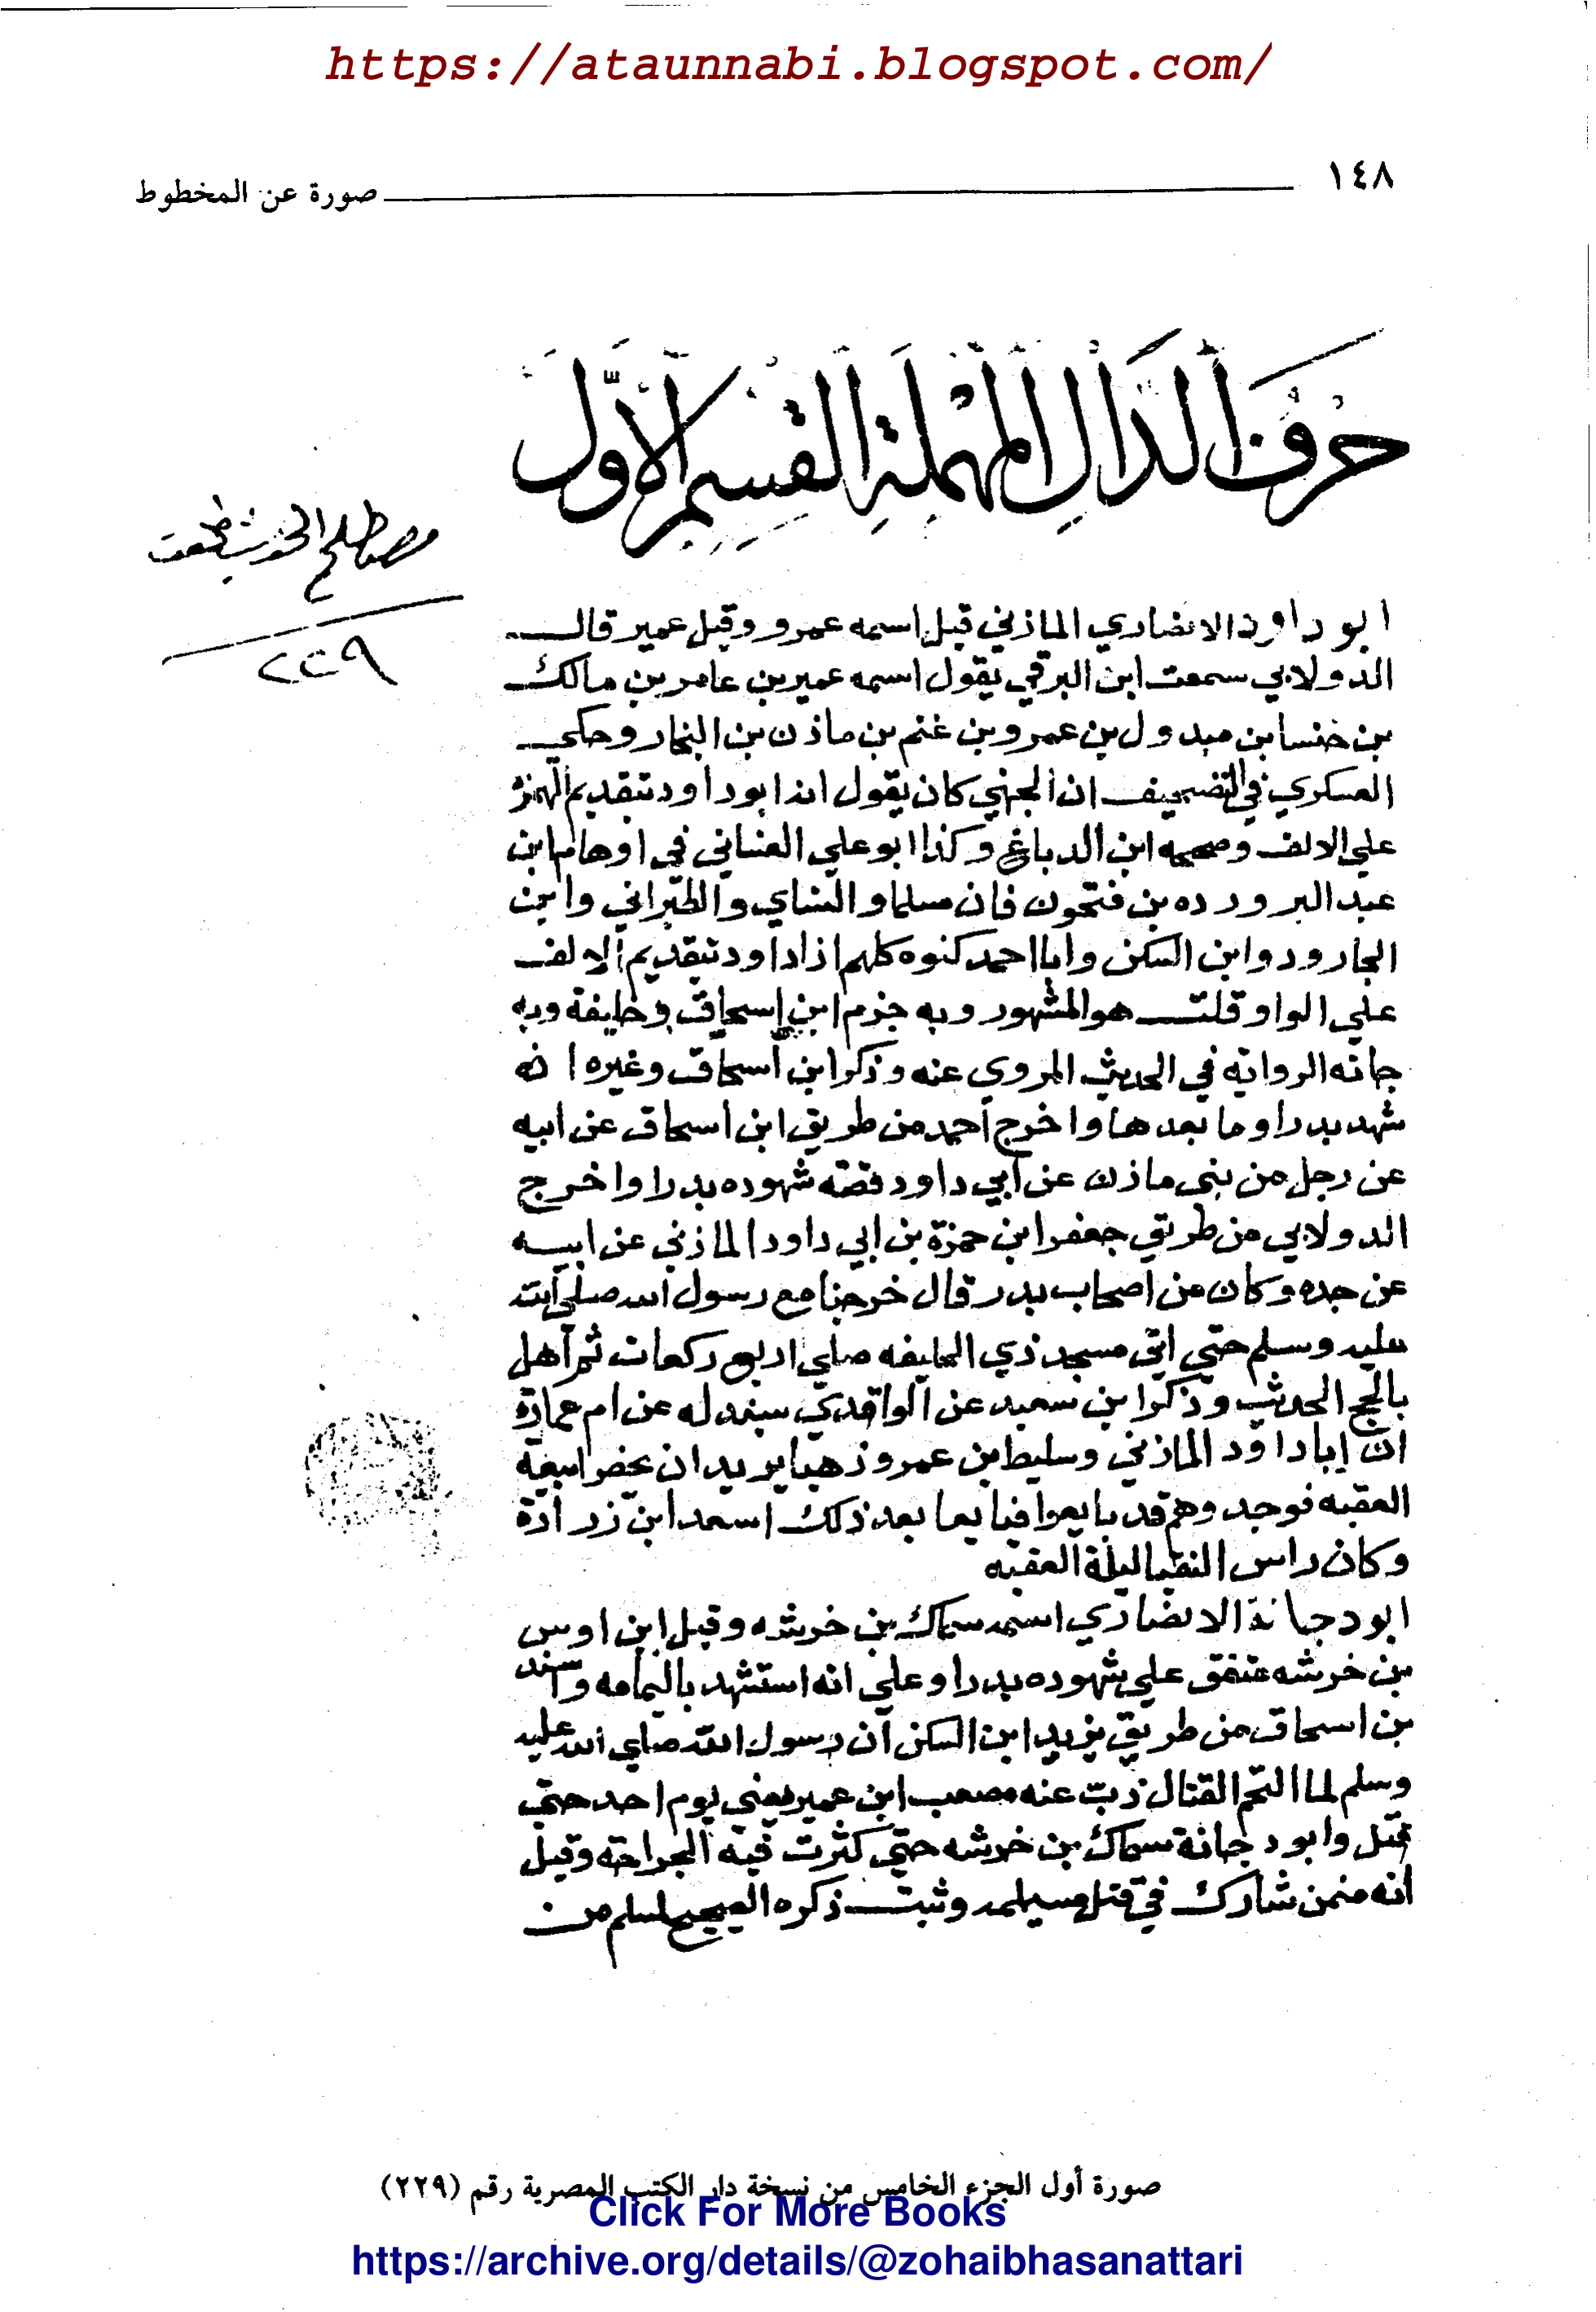 https://ataunnabi.blogspot.com/
١٤٨
صورة عن المخطوط
حرف الدال المهملة القسم الأول
مصطلح
٢٢٩
ابو داود الانصاري المازني قيل اسمه عمرو وقيل عمير قال
الدولابي سمعت ابن البرقي يقول اسمه عمير بن عامر بن مالك
بن خنسا بن مبدول بن عمرو بن غنم بن مازن بن النجار وحكي
العسكري في التصحيف ان الجهني كان يقول انه ابو دااود بتقديم الهمز
علي الالف وصححه ابن الدباغ وكذا ابو علي الغساني في اوهام ابن
عبد البر ورده بن فتحون فان مسلما و النساي و الطبراني وابن
الجارود وابن السكن وابا احمد كنوه كلهم اذا داود بتقديم الالف
علي الواو قلت هو المشهور وبه جزم ابن إسحاق وخليفة وبه
جاته الرواية في الحديث المروي عنه وذكر ابن اسحاق وغيره انه
شهد بدرا وما بعدها واخرج احمد من طريق ابن اسحاق عن ابيه
عن رجل من بني مازن عن أبي داود قصة شهوده بدرا واخرج
الدولابي من طريق جعفر ابن حمزة بن ابي داود المازني عن ابيه
عن جده وكان من اصحاب بدر قال خرجنا مع رسول الله صلي الله
عليه وسلم حتي اتي مسجد ذي الحليفه صلي اربع ركعات ثم أهل
بالحج الحديث وذكر ابن سعيد عن الواقدي بسند له عن ام عمارة
ان ابا داود المازني وسليط بن عمرو ذهبا يريدان يحضرا بيعة
العقبه فوجدوهم قد بايعوا فبايعا بعد ذلك اسعد ابن زرارة
وكان راس النقبا ليلة العقبه
ابو دجانة الانصاري اسمه سماك بن خرشه وقيل ابن اوس
بن خرشه متفق علي شهوده بدرا وعلي انه استشهد باليمامه واسند
بن اسحاق من طريق يزيد ابن السكن أن رسول الله صلي الله عليه
وسلم لما التحم القتال ذب عنه مصعب ابن عمير يعني يوم احد حتي
قتل وابو دجانة سماك بن خرشه حتي كثرت فيه الجراحة وقيل
انه ممن شارك في قتل مسيلمه وثبت ذكره الصحيح لمسلم من
صورة أول الجزء الخامس من نسخة دار الكتب المصرية رقم (٢٢٩)
Click For More Books
https://archive.org/details/@zohaibhasanattari